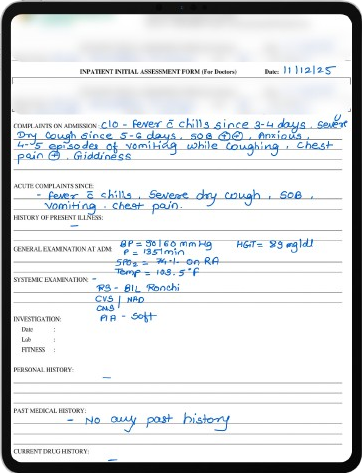 INPATIENT INITIAL ASSESSMENT FORM (For Doctors) Date: 11/12/25
COMPLAINTS ON ADMISSION: C/O - Fever c̄ chills since 3-4 days, Severe
Dry Cough since 5-6 days, SOB ⊕⊕, Anxious,
4-5 episodes of vomiting while coughing, Chest
pain ⊕, Giddiness
ACUTE COMPLAINTS SINCE:
- fever c̄ chills, Severe dry cough, SOB,
vomiting, chest pain.
HISTORY OF PRESENT ILLNESS:
-
GENERAL EXAMINATION AT ADM: BP = 90/60 mmHg HGT = 89 mg/dl
P = 135/min
SPO2 = 74% on RA
Temp = 103.5°F
SYSTEMIC EXAMINATION: -
RS - BIL Ronchi
CVS / NAD
CNS
PA - Soft
INVESTIGATION:
Date :
Lab :
FITNESS :
PERSONAL HISTORY:
-
PAST MEDICAL HISTORY:
- No any past history
CURRENT DRUG HISTORY:
-